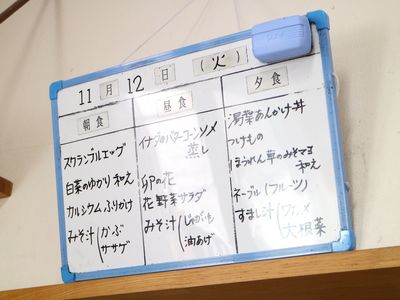 11月12日(火)
朝食
スクランブルエッグ
白菜のゆかり和え
カルシウムふりかけ
みそ汁/かぶ
ササゲ
昼食
イナダのバターコーンソメ
蒸し
卯の花
花野菜サラダ
みそ汁/じゃがいも
油あげ
夕食
湯葉あんかけ丼
つけもの
ほうれん草のみそマヨ
和え
ネーブル(フルーツ)
すまし汁/ワカメ
大根葉